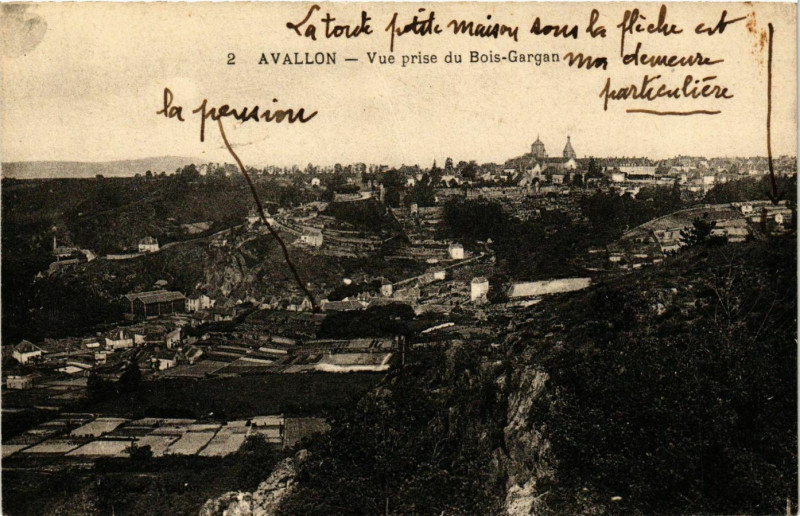 La toute petite maison sous la flèche est
2 AVALLON — Vue prise du Bois-Gargan
ma demeure
particulière
la pension